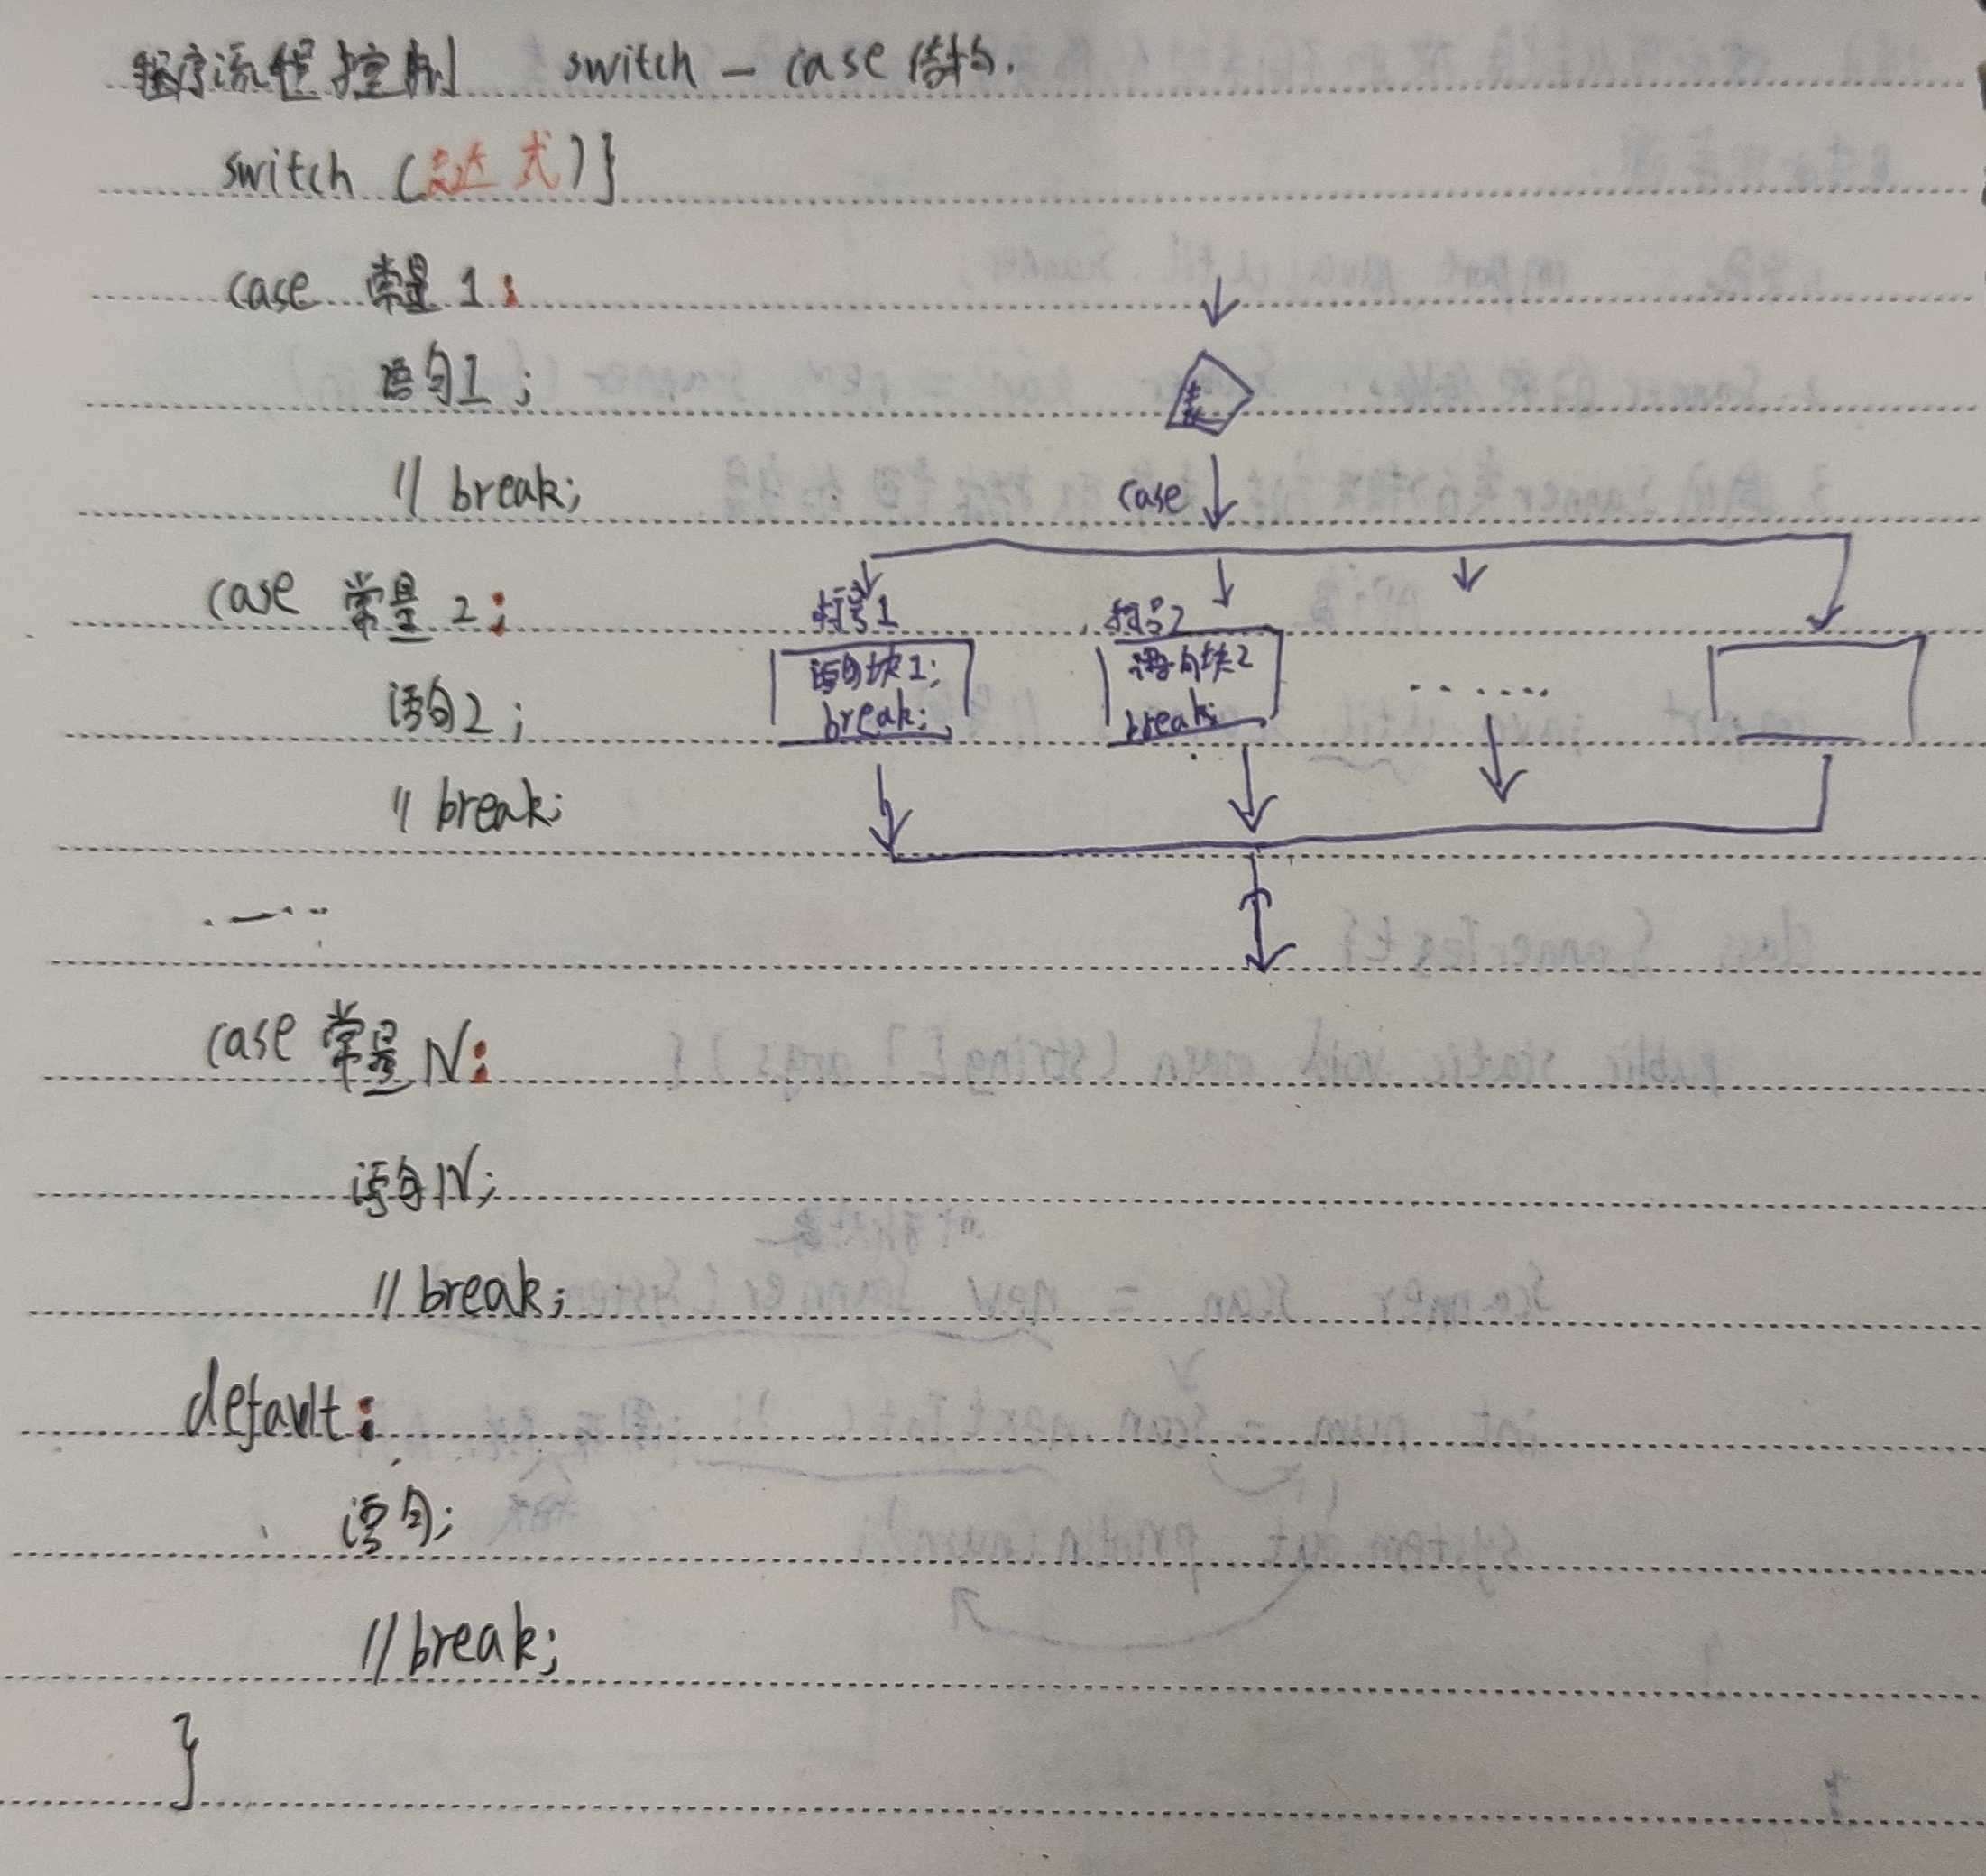 程序流程控制 switch - case 结构.
switch (表达式)}
case 常量1:
语句1;
// break;
case 常量2:
语句2;
// break;
......
case 常量N:
语句N;
// break;
default:
语句;
// break;
}
表
case
符号1
符号2
语句块1;
break;
语句块2
break;
......